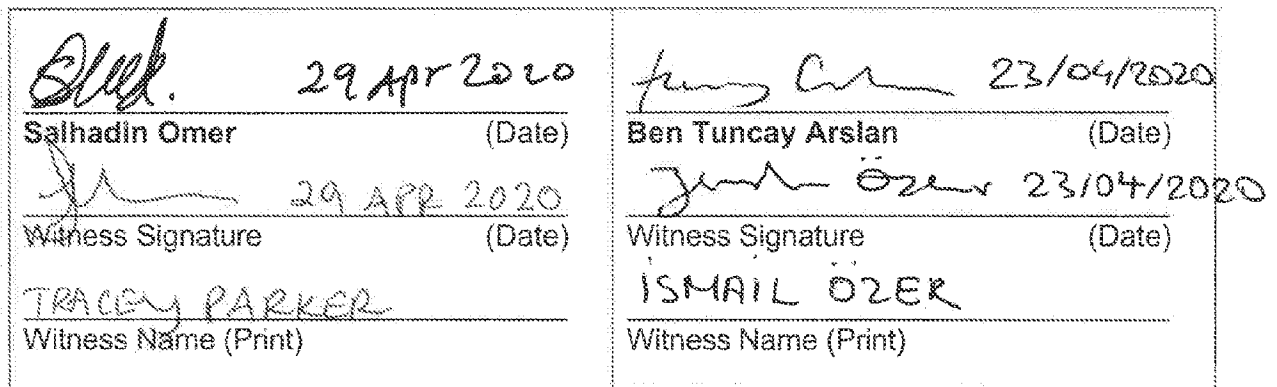 29 Apr 2020
Salhadin Omer (Date)
29 APR 2020
Witness Signature (Date)
TRACEY PARKER
Witness Name (Print)
23/04/2020
Ben Tuncay Arslan (Date)
Özer 23/04/2020
Witness Signature (Date)
İSMAİL ÖZER
Witness Name (Print)